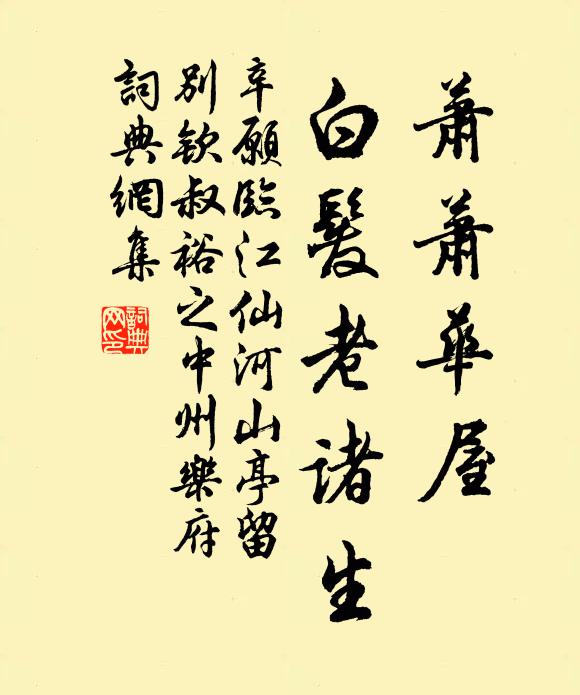 蕭蕭華屋
白髮老諸生
辛願臨江仙河山亭留
別欽叔裕之中州樂府
詞典網集
詞典
网印